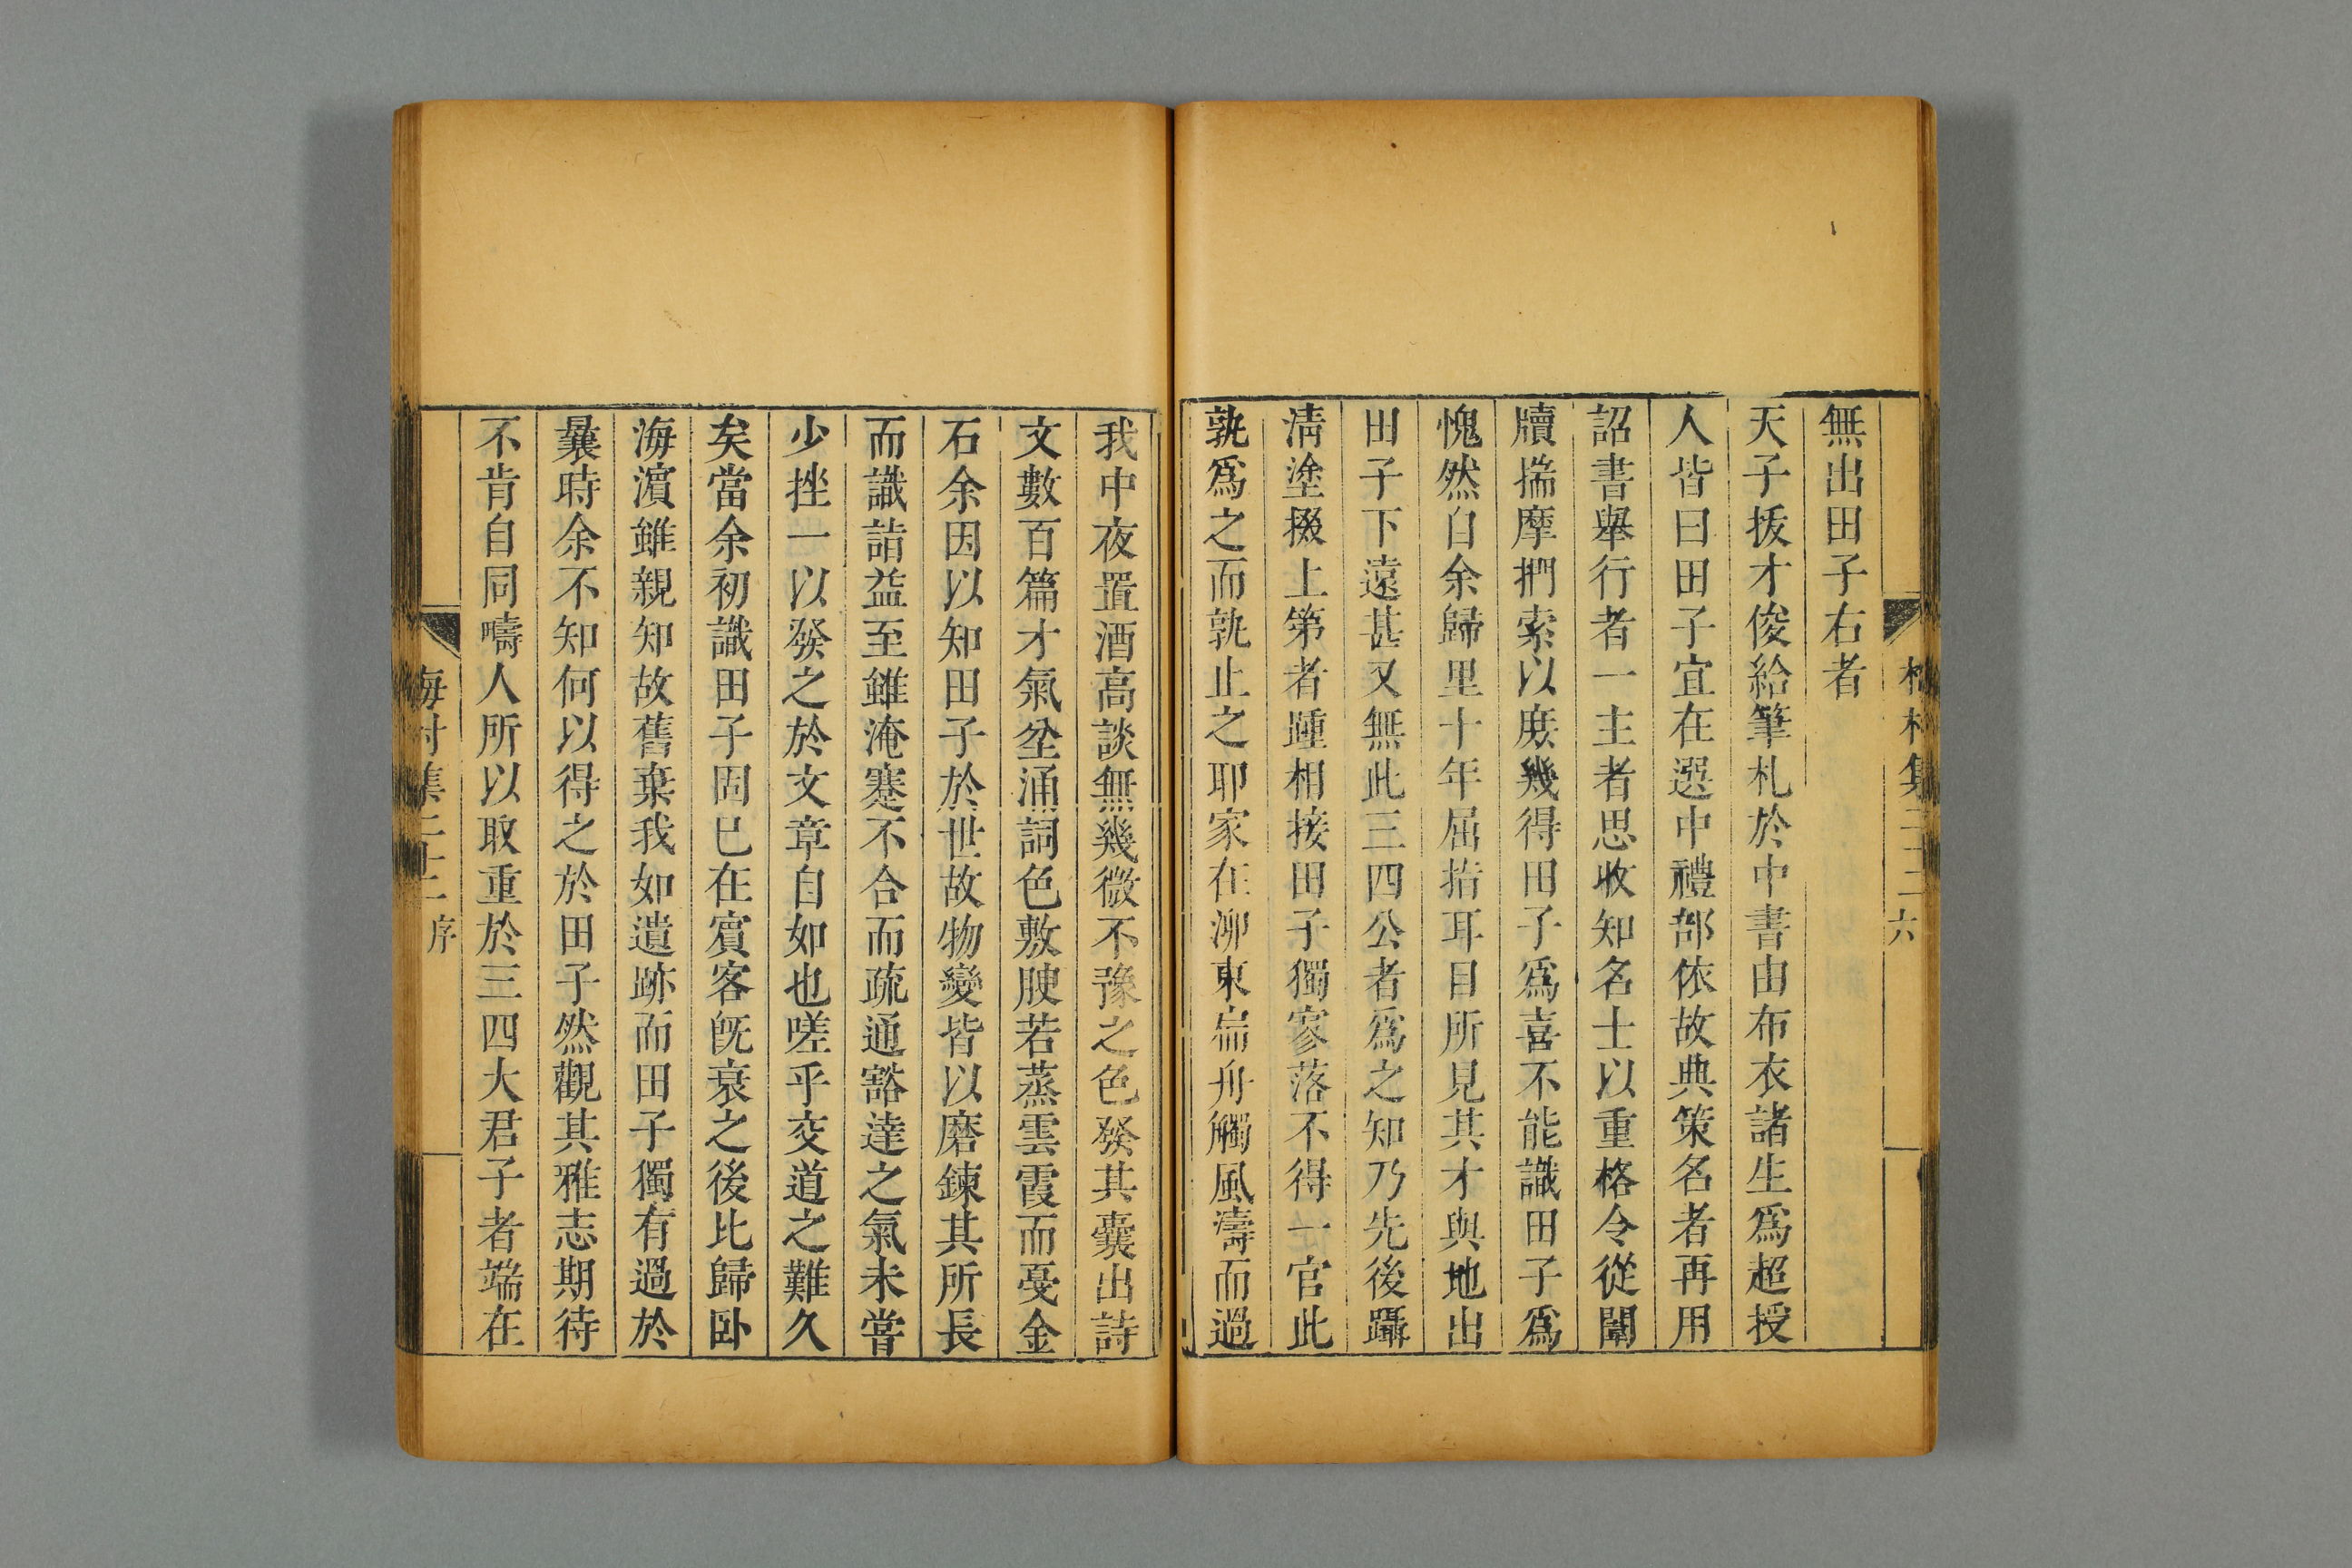 無出田子右者
天子拔才俊給筆札於中書由布衣諸生爲超授
人皆曰田子宜在選中禮部依故典策名者再用
詔書舉行者一主者思收知名士以重格令從闈
牘揣摩捫索以庶幾得田子爲喜不能識田子爲
愧然自余歸里十年屈指耳目所見其才與地出
田子下遠甚又無此三四公者爲之知乃先後躡
清塗掇上第者踵相接田子獨寥落不得一官此
孰爲之而孰止之耶家在泖東耑舟觸風濤而過
我中夜置酒高談無幾微不豫之色發其囊出詩
文數百篇才氣坌涌詞色敷腴若蒸雲霞而戞金
石余因以知田子於世故物變皆以磨鍊其所長
而識詣益至雖淹蹇不合而疏通豁達之氣未嘗
少挫一以發之於文章自如也嗟乎交道之難久
矣當余初識田子固已在賓客旣衰之後比歸卧
海濵雖親知故舊棄我如遺跡而田子獨有過於
曩時余不知何以得之於田子然觀其雅志期待
不肯自同疇人所以取重於三四大君子者端在
海村集二十二 序